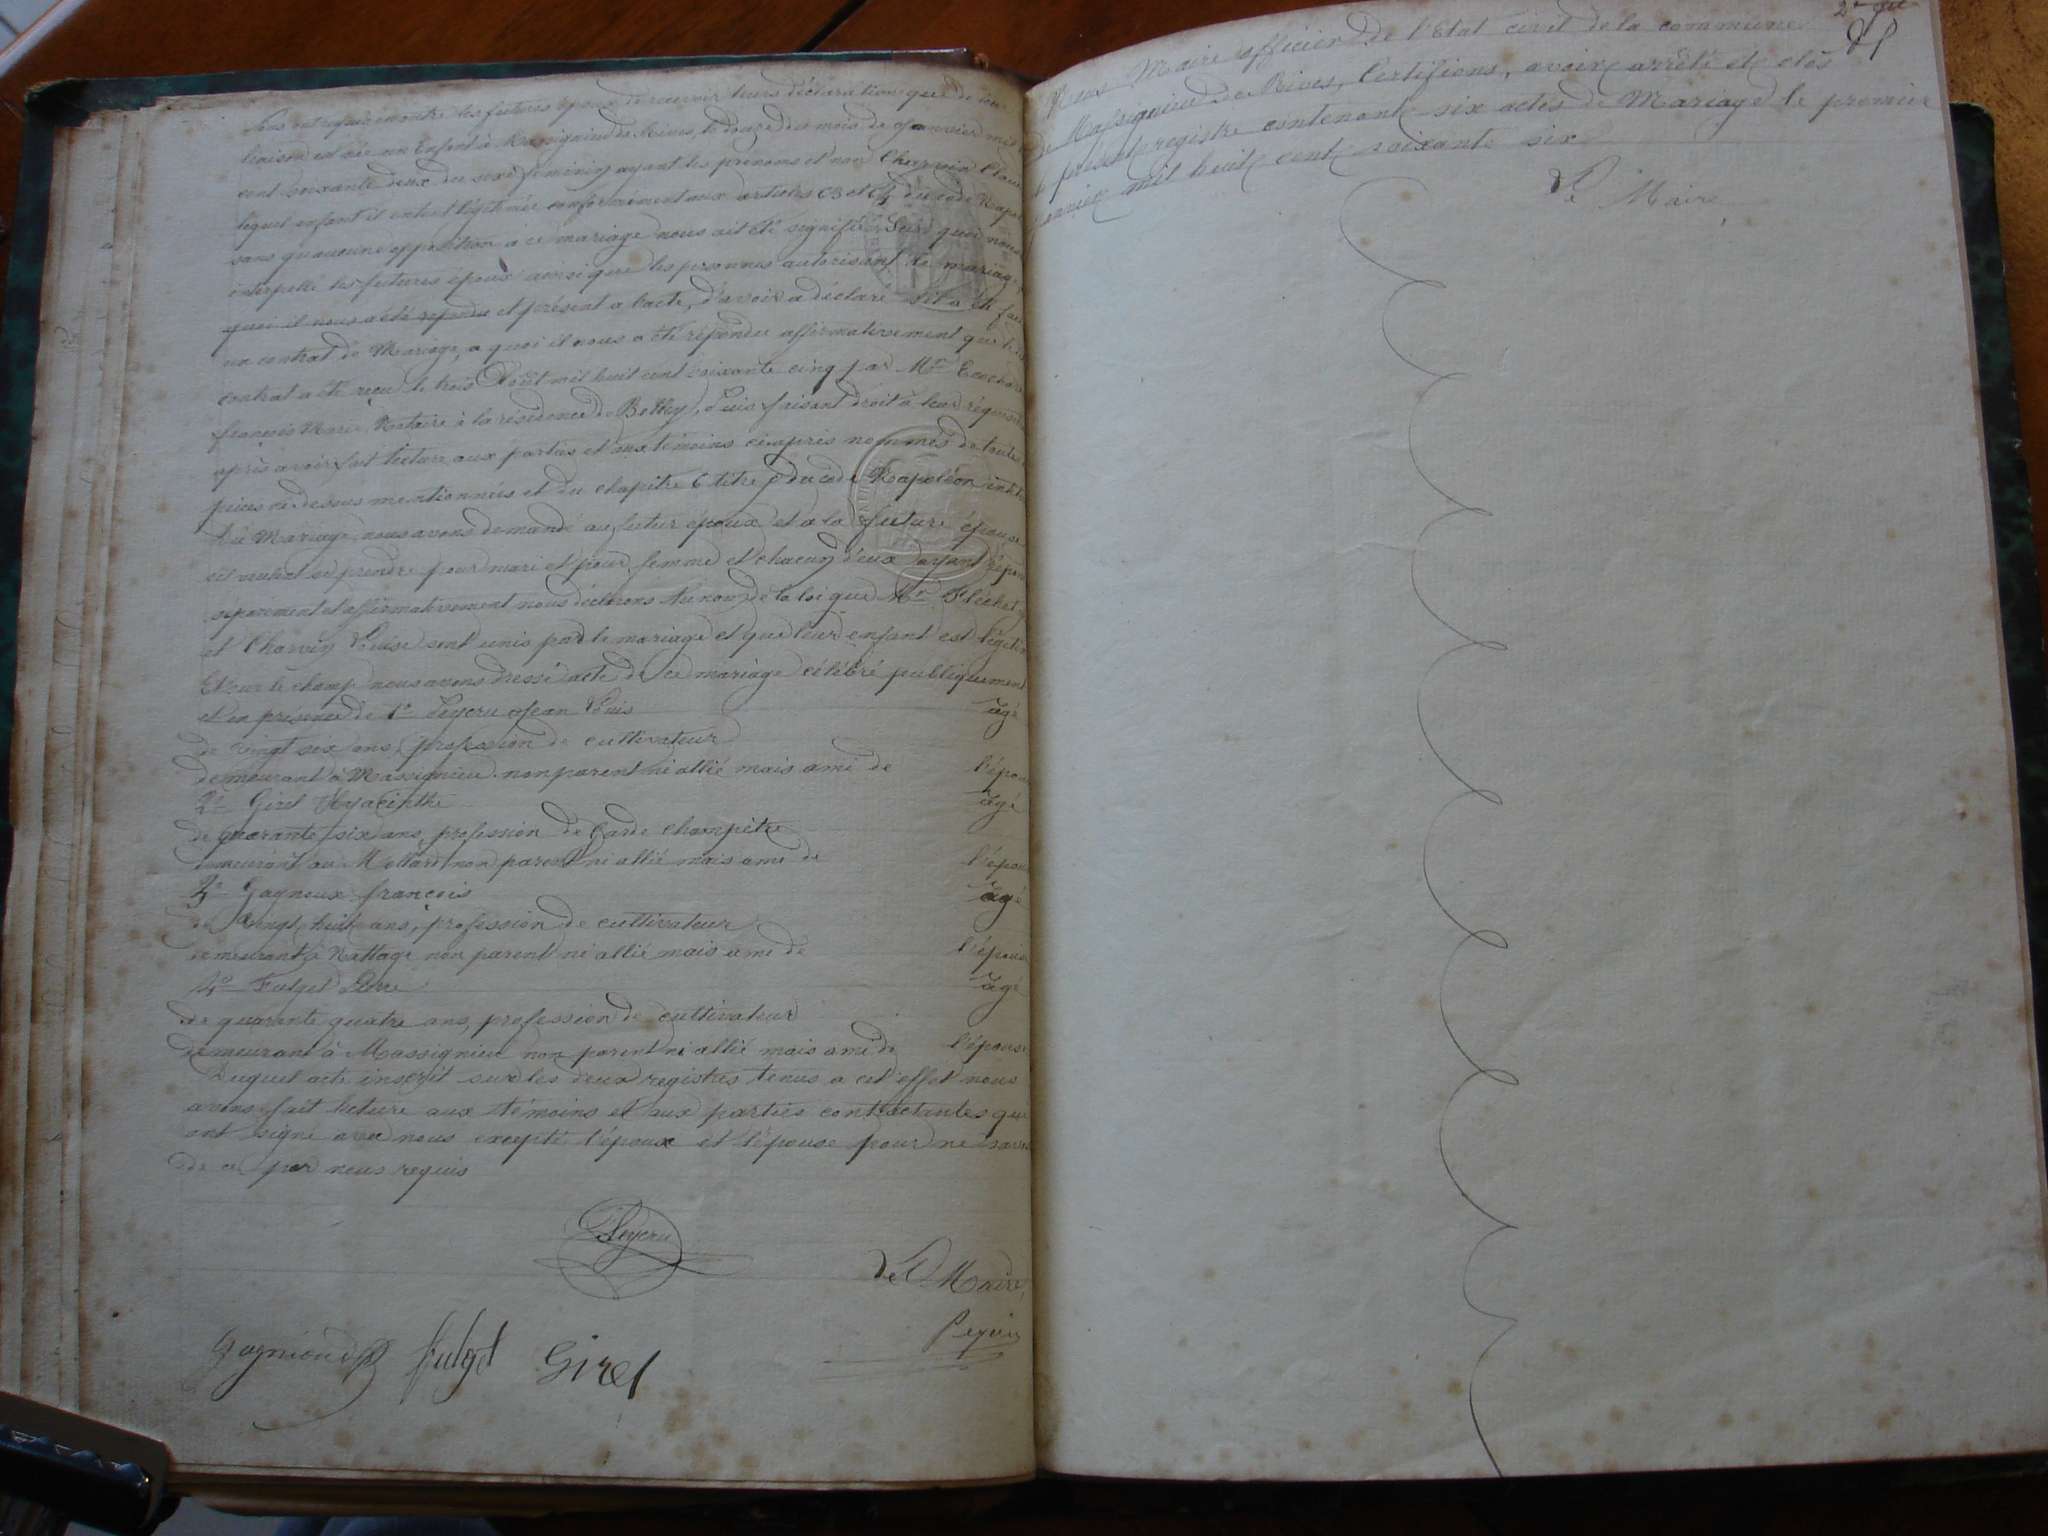 nous ont requis en outre les futures époux de recevoir leurs déclaration que de leur
liaison est née un Enfant à Massignieu de Rives, le douze du mois de Janvier mil
cent soixante deux du sexe féminin ayant les prénoms et nom Charvin
lequel enfant il entent légitimée conformément aux articles et du code Napol
sans qu'aucune opposition à ce mariage nous ait été signifiée. Sur quoi nous
interpellé les futures époux ainsi que les personnes autorisant le mariage
quoi il nous a été répondu et présent a l'acte, d'avoir a déclaré s'il a été fait
un contrat de Mariage, a quoi il nous a été répondu affirmativement que le
contrat a été reçu le trois Août mil huit cent soixante cinq par Mr
françois Marie Notaire à la résidence de Belley, Puis faisant droit à leur réquisit
après avoir fait lecture aux parties et aux témoins ci après nommés de toutes
pièces ci dessus mentionnées et du chapitre 6 titre 5 du code Napoléon intit
du Mariage, nous avons demandé au futur époux et a la future épouse
s'il veulent se prendre pour mari et pour femme et chacun d'eux ayant répon
séparément et affirmativement nous déclarons Au nom de la loi que Mr
et Charvin Louise sont unis par le mariage et que leur enfant est légitim
Et sur le champ nous avons dressé acte de ce mariage célébré publiquement
et en présence de 1° Peycru Jean Louis âgé
de vingt six ans, profession de cultivateur
demeurant à Massignieu non parent ni allié mais ami de l'épou
2° Girel Hyacinthe âgé
de quarante six ans, profession de Garde champêtre
demeurant au Mollard non parent ni allié mais ami de l'épou
3° Gagneux françois âgé
de vingt huit ans, profession de cultivateur
demeurant à Nattage non parent ni allié mais ami de l'épouse
4° Fulgel Pierre âgé
de quarante quatre ans, profession de cultivateur
demeurant à Massignieu non parent ni allié mais ami de l'épouse
Duquel acte inscrit sur les deux registres tenus a cet effet nous
avons fait lecture aux témoins et aux parties contractantes qui
ont signé avec nous excepté l'époux et l'épouse pour ne savoir
de ce par nous requis
Peycru
Le Maire,
Gagnioud fulgel Girel
Nous Maire officier de l'Etat civil de la commune
de Massignieu de Rives, Certifions, avoir arrêté et clos
le présent registre contenant six actes de Mariage le premier
Janvier mil huit cent soixante six
Le Maire,